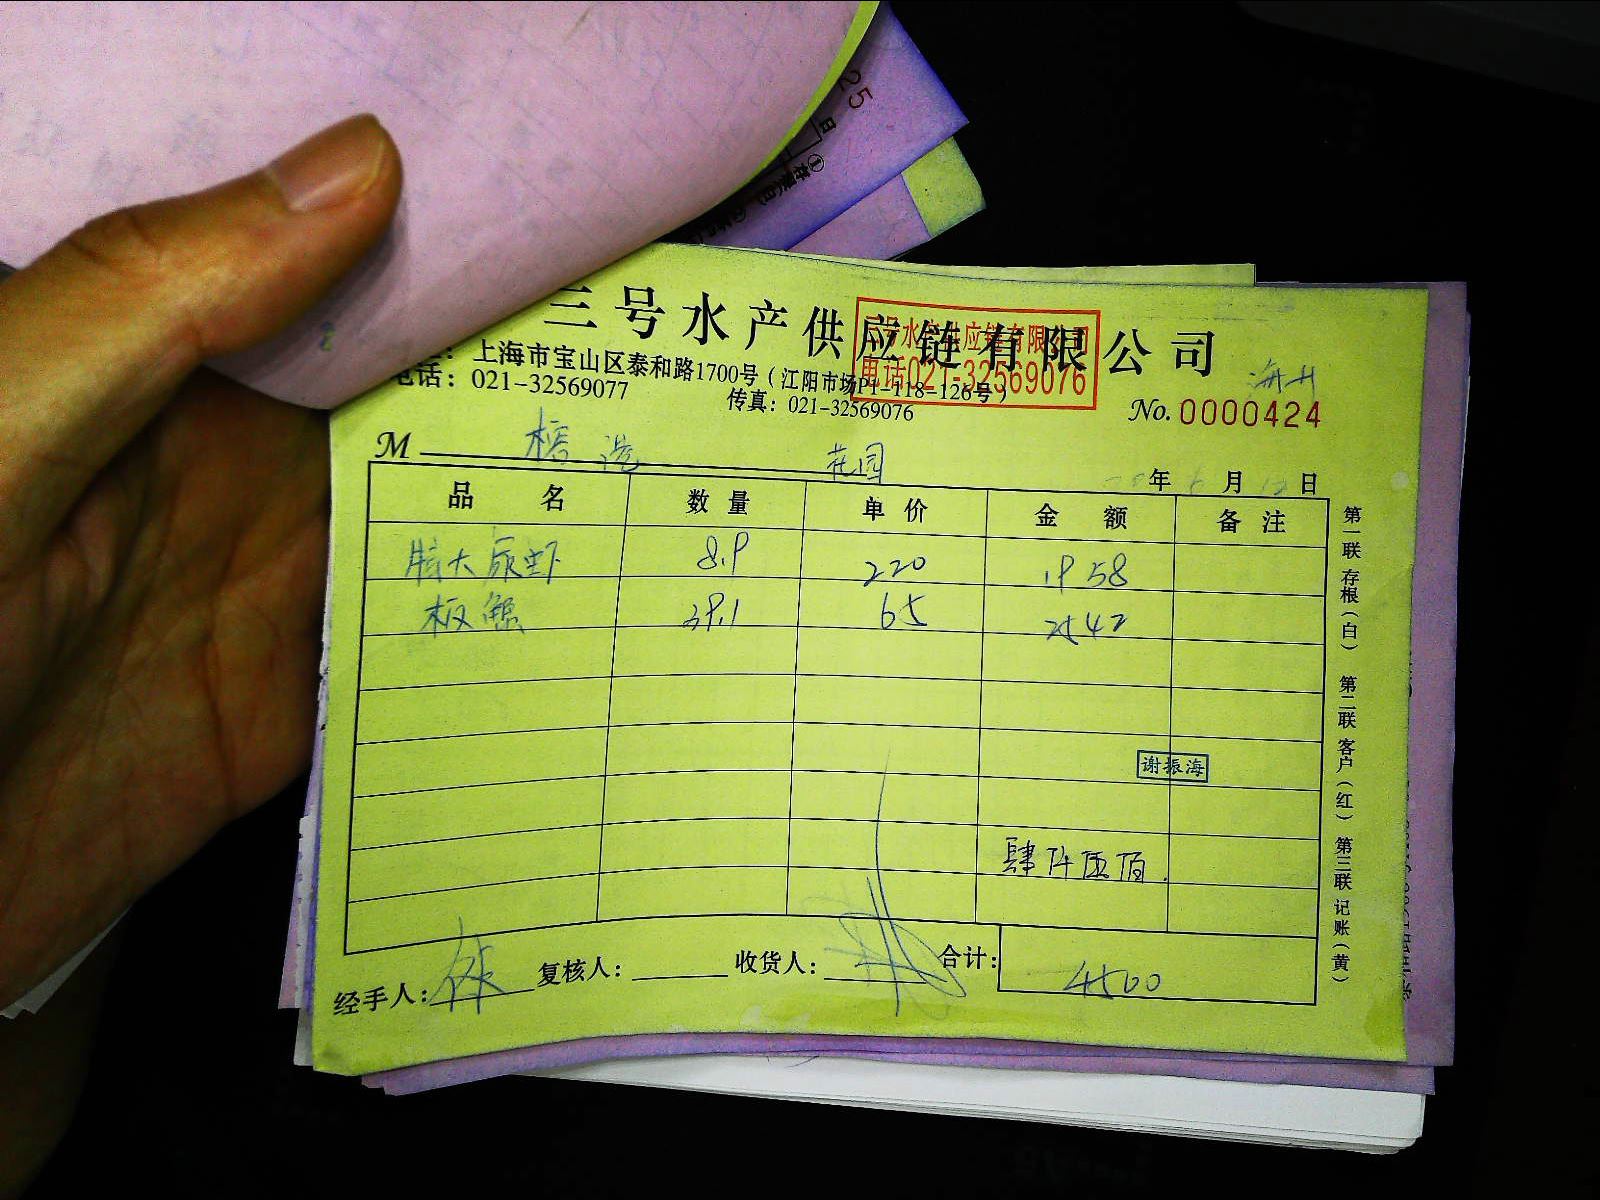 三号水产供应链有限公司
三号水产供应链有限公司
电话021-32569076
上海市宝山区泰和路1700号（江阳市场P1-118-126号）
电话：021-32569077
传真：021-32569076
No. 0000424
M 花园
年 月 12 日
品名 数量 单价 金额 备注
大尿虾 8.9 220 1958
板鲳 39.1 65 2542
谢振海
肆仟伍佰
合计：4500
经手人： 复核人： 收货人：
第一联 存根（白） 第二联 客户（红） 第三联 记账（黄）
25
日